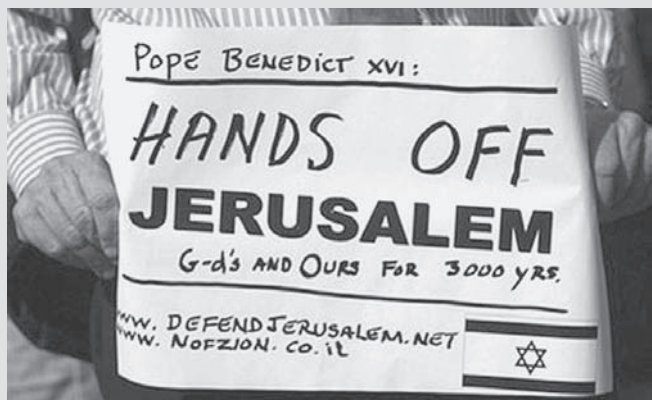 POPE BENEDICT XVI:
HANDS OFF
JERUSALEM
G-d's AND OURS FOR 3000 YRS.
www. DEFENDJERUSALEM.NET
www. NOFZION.CO.il